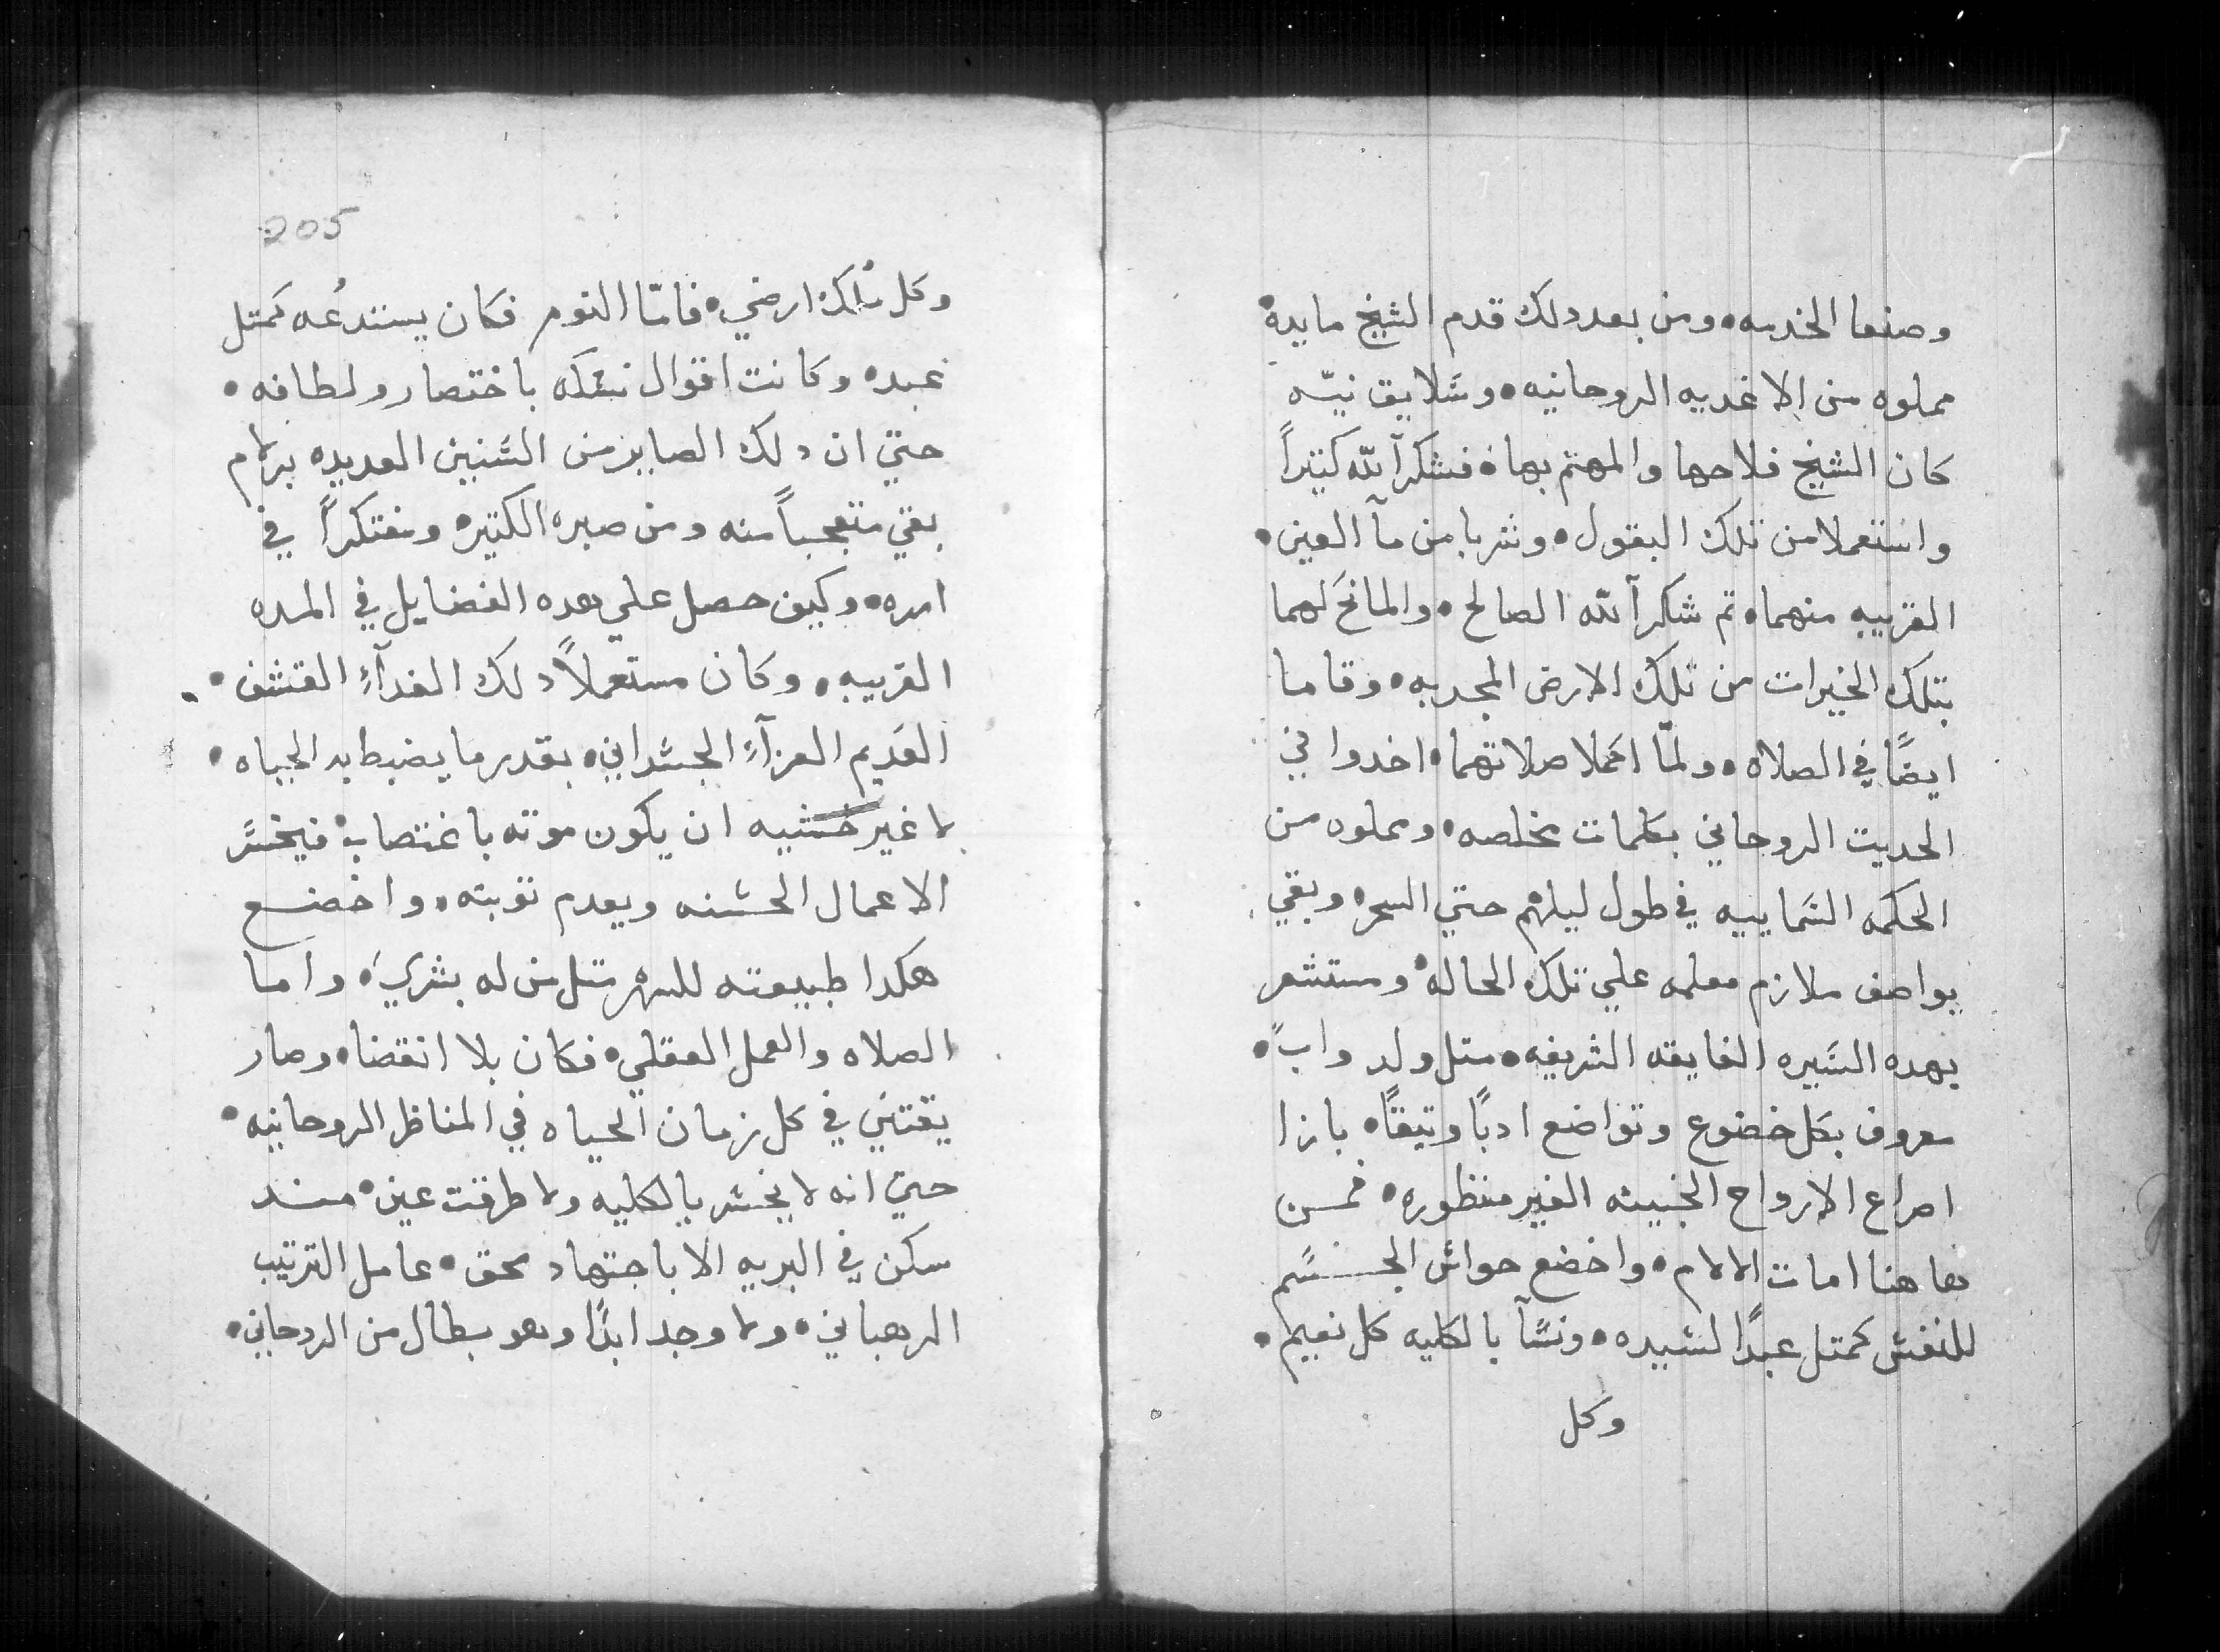 وصنعا الخدمه، ومن بعد دلك قدم الشيخ مايدة
مملوه من الاغديه الروحانيه، وسَلايق نيّه
كان الشيخ فلاحها والمهتم بها، فشكراً لله كتيراً
واستعملا من تلك البقول، وشربا من مآ العين،
القريبه منهما، تم شكرا لله الصالح، والمانح لهما
بتلك الخيرات من تلك الارض المجدبه، وقاما
ايضًا في الصلاه، ولمّا اكملا صلاتهما، اخدوا في
الحديت الروحاني بكلمات مخلصه، ومملوه من
الحكمه السَماييه في طول ليلهم حتي السحر، وبقي
يواصف ملازم معلمه علي تلك الحاله، ومستشعر
بهده السَيره الفايقه الشريفه، متل ولد واب،
معروف بكل خضوع وتواضع ادبًا وتيقًا، بازا
اصراع الارواح الخبيثه الغير منظوره، فمن
هاهنا امات الالام، واخضع حواسَ الجسَم
للنفسَ كمتل عبدًا لسَيده، ونسَآ بالكليه كل نعيم،
وكل
205
وكل مُلك ارضي، فامّا النوم فكان يستدعُه كمتل
عبده وكانت اقوال نسَكه باختصار ولطافه،
حتي ان دلك الصابر من السَنين العديده برلام
بقي متعجباً منه ومن صبره الكتيره ومفتكراً في
امره، وكيف حصل علي هده الفضايل في المده
القريبه، وكان مستعملاً دلك الغدآءِ القشف،
العَديم العزآءِ الجسَداني، بقدر ما يضبط به الحياه،
لا غير خشيه ان يكون موته باغتصاب، فيخسَر
الاعمال الحسَنه ويعدم توبته، واخضع
هكدا طبيعته للسهر متل من له بشري، واما
الصلاه والعمل العقلي، فكان بلا انقضاء، وصار
يقتني في كل زمان الحياه في المناظر الروحانيه،
حتي انه لا يخسَر بالكليه ولا طرفت عين، مند
سكن في البريه الا باجتهاد بحق، عامل الترتيب
الرهباني، ولا وجد ابدًا وهو بطال من الروحاني،